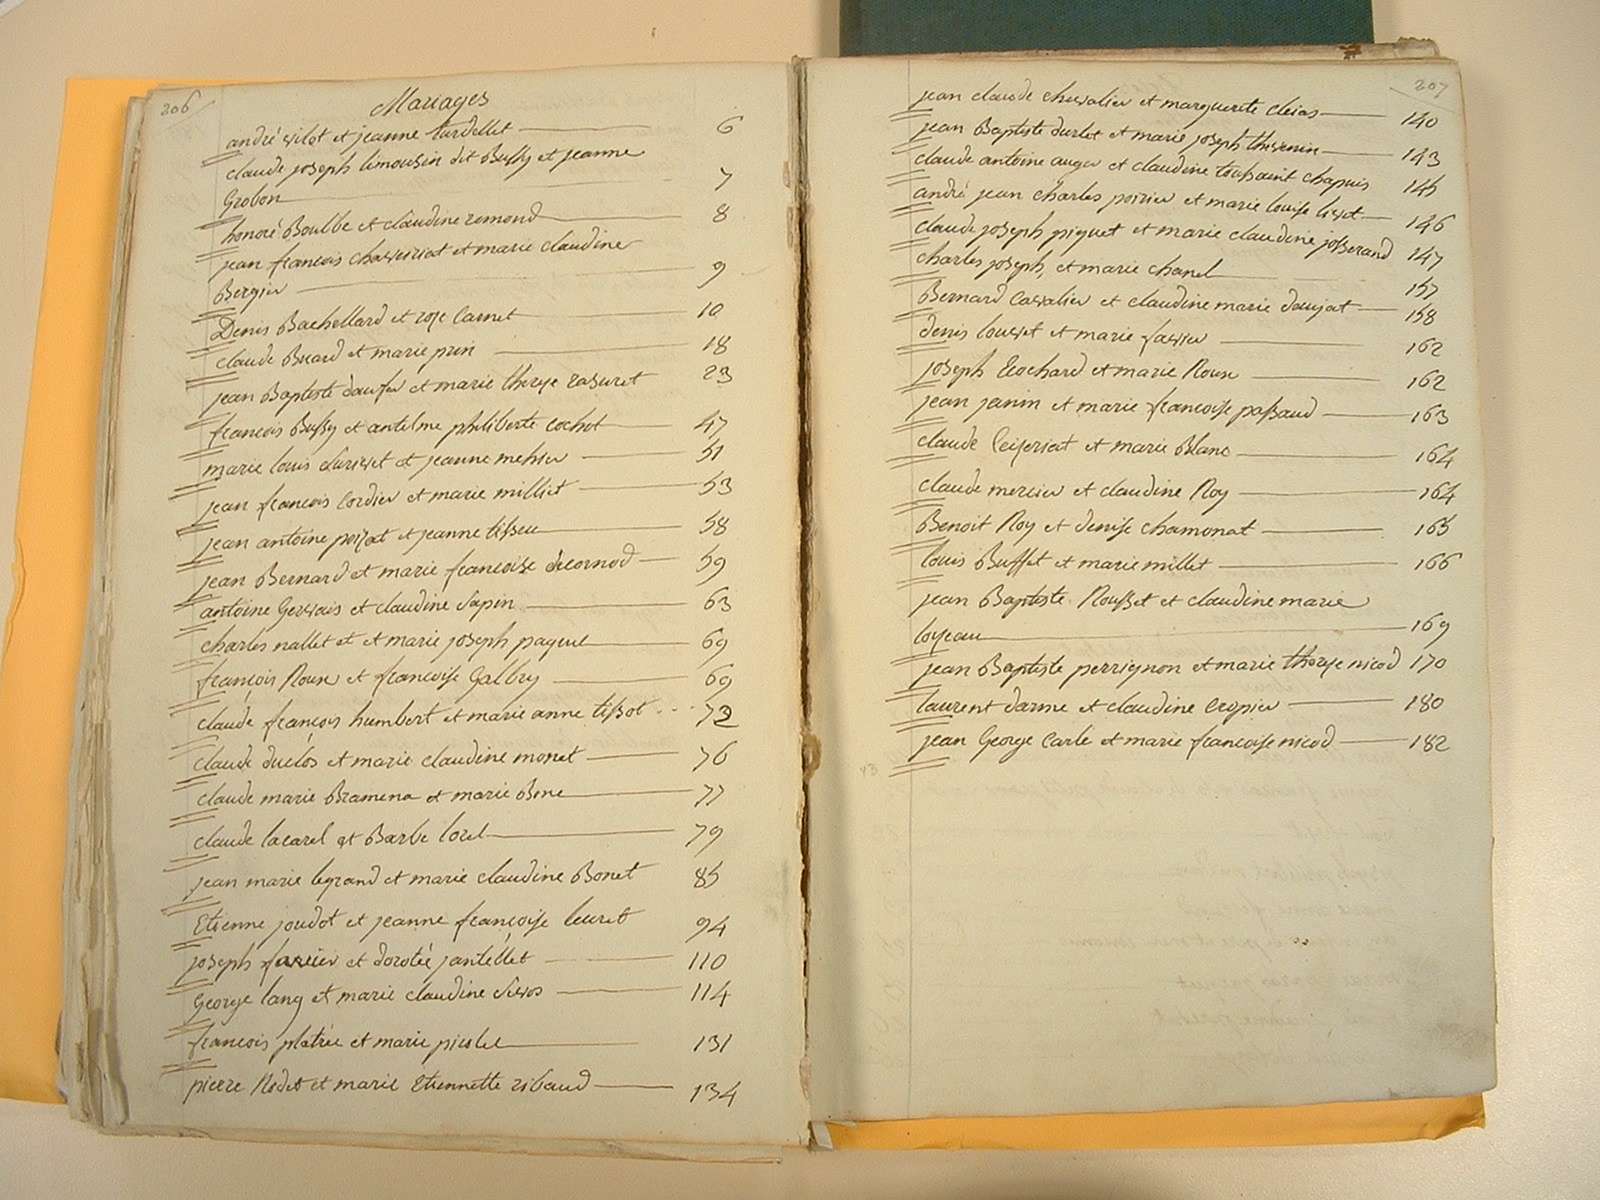 206
Mariages
andré vilot et jeanne tardellet 6
claude joseph limousin dit Bussy et jeanne
Grobon 7
honoré Boulbe et claudine remond 8
jean francois chavouriat et marie claudine
Bergier 9
Denis Bachellard et rose Carnet 10
claude Buard et marie prin 18
jean Baptiste et marie therese 23
francois Bussy et antelme philiberte cochet 47
marie louis et jeanne 51
jean francois Cordier et marie milliet 53
jean antoine poizat et jeanne tisseu 58
jean Bernard et marie francoise decornod 59
antoine Gervais et claudine Sapin 63
charles nallet et et marie joseph paquel 69
françois Roux et francoise Galbry 69
claude françois humbert et marie anne tissot 72
claude duclos et marie claudine monet 76
claude marie Bramena et marie Bone 77
claude lacarel et Barbe lorel 79
jean marie legrand et marie claudine Bonet 85
Etienne joudot et jeanne françoise leuret 94
joseph favier et dorotée jantellet 110
George lang et marie claudine 114
francois platrée et marie picolet 131
pierre Rodet et marie Etiennette ribaud 134
207
jean claude chevalier et marguerite 140
jean Baptiste durlet et marie joseph thevenin 143
claude antoine auger et claudine toussaint chapuis 145
andré jean charles poirier et marie louise livet 146
claude joseph piquet et marie claudine josserand 147
charles joseph, et marie chanel 157
Bernard Cavalier et claudine marie doujat 158
denis louvet et marie favier 162
joseph Rochard et marie Roux 162
jean janin et marie francoise passaud 163
claude Ceizeriat et marie Blanc 164
claude mercier et claudine Roy 164
Benoit Roy et denise chamonat 165
louis Buffet et marie millet 166
jean Baptiste Rousset et claudine marie
loyeau 169
jean Baptiste perrignon et marie therese nicod 170
laurent darme et claudine cropier 180
jean George Carle et marie francoise nicod 182